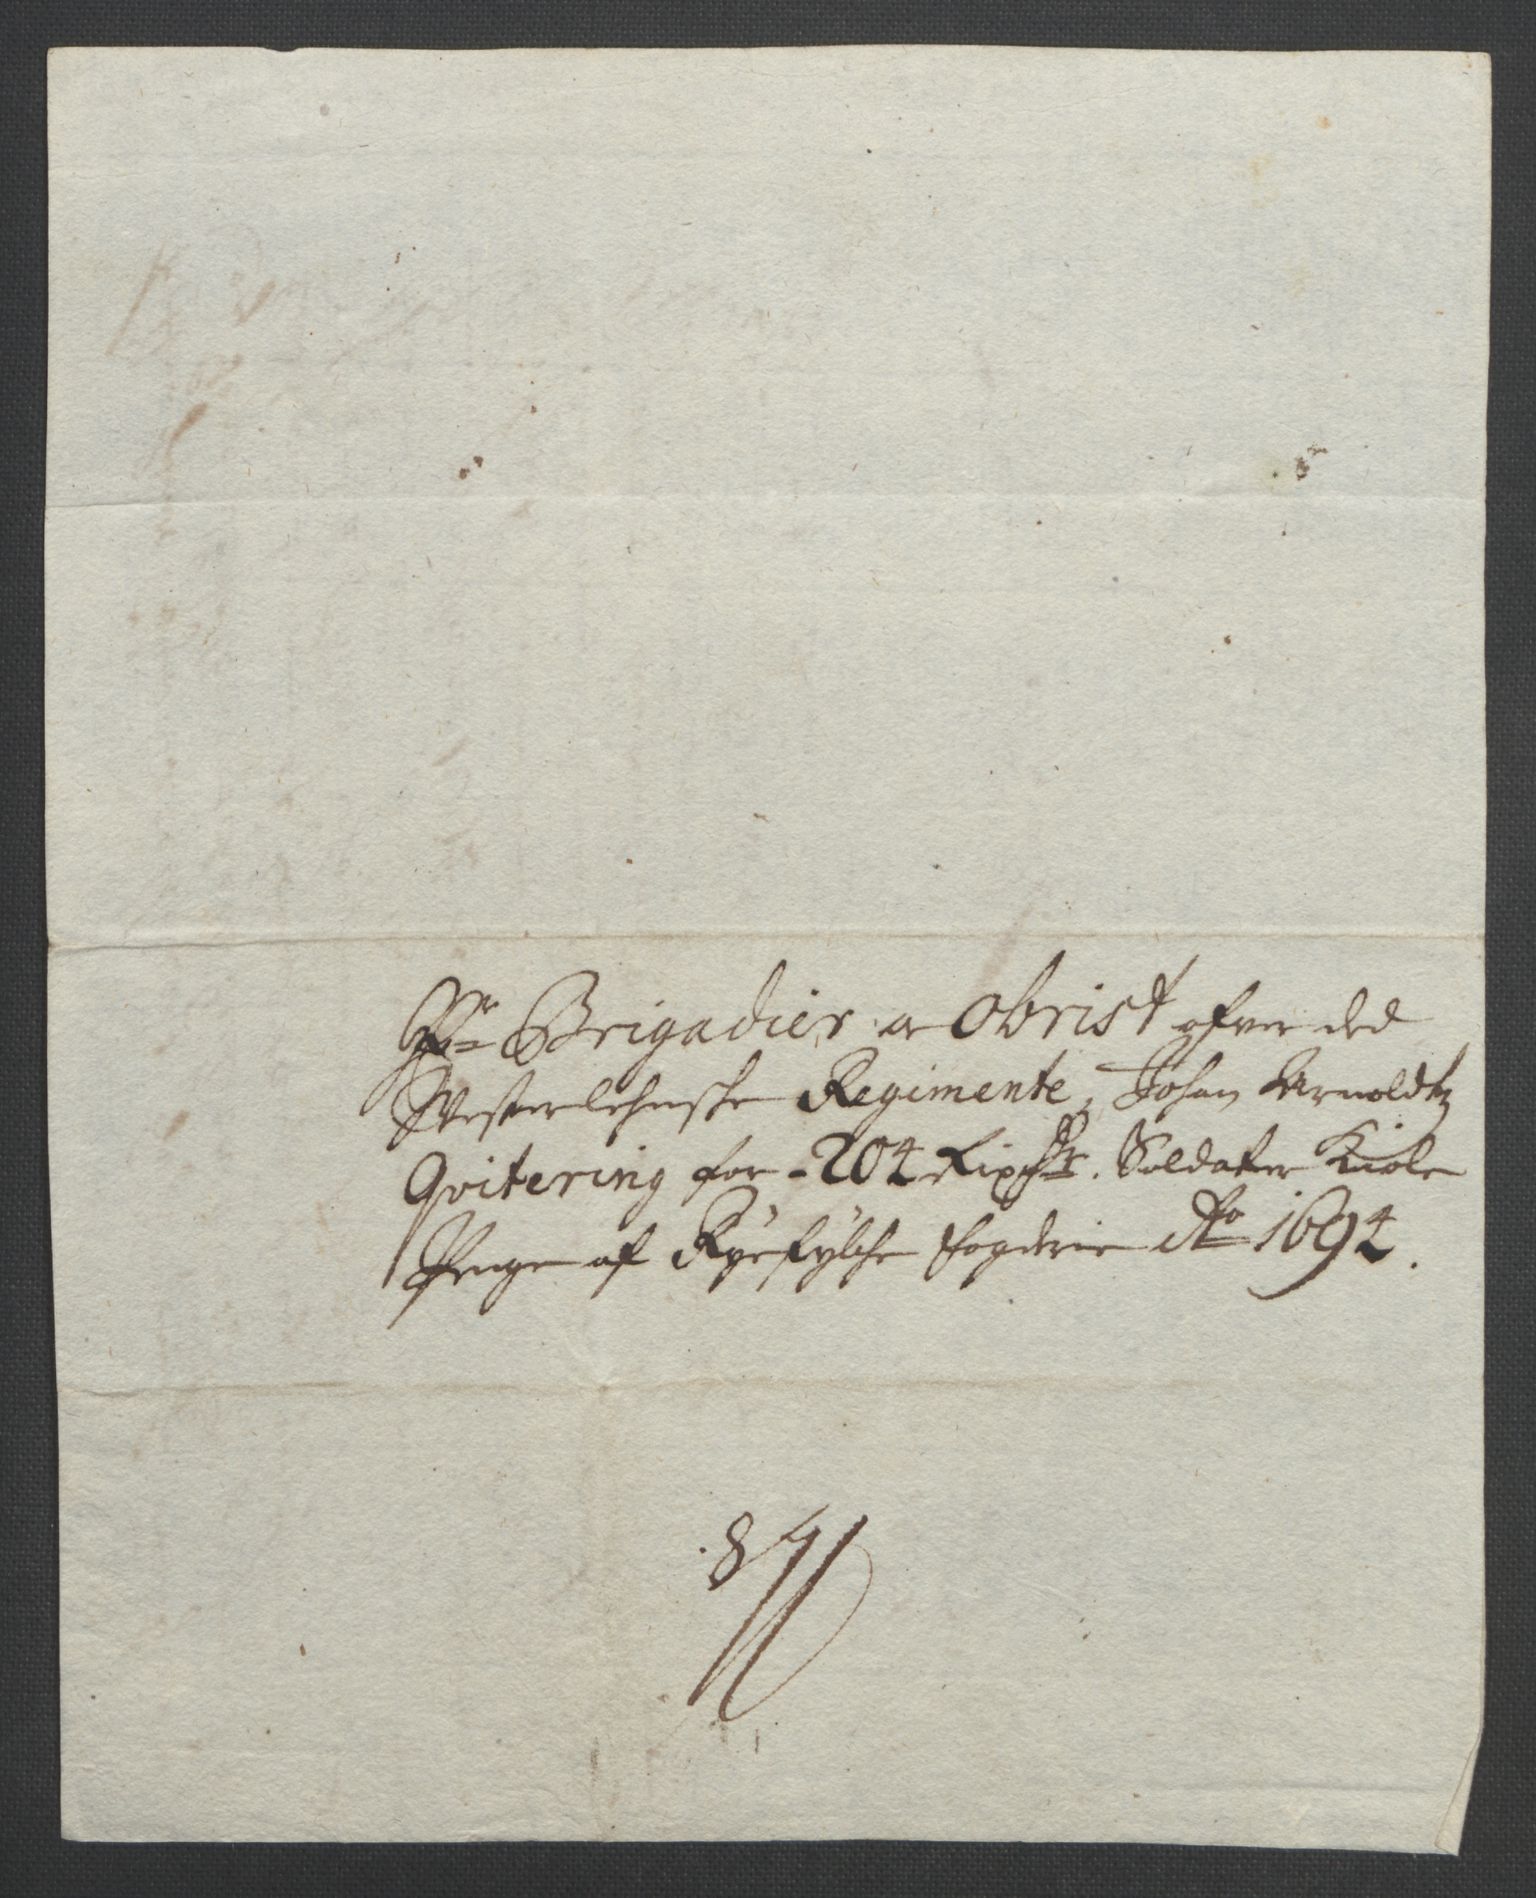 Hr Brigadier oc Obrist ofver ded
Westerlehnske Regimente, Johan Arnoldtz
Qvitering for - 204 Rixdr. Soldater Kiole
Penge af Ryefylche fogderie Ao 1694.